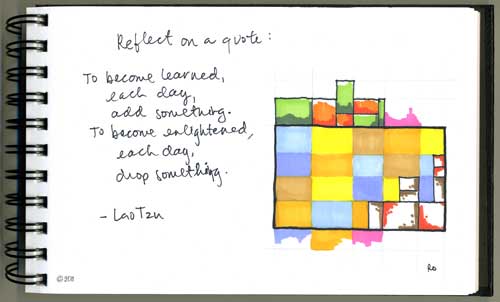 Reflect on a quote:
To become learned,
each day,
add something.
To become enlightened,
each day,
drop something.
- Lao Tzu
© 2011
RO